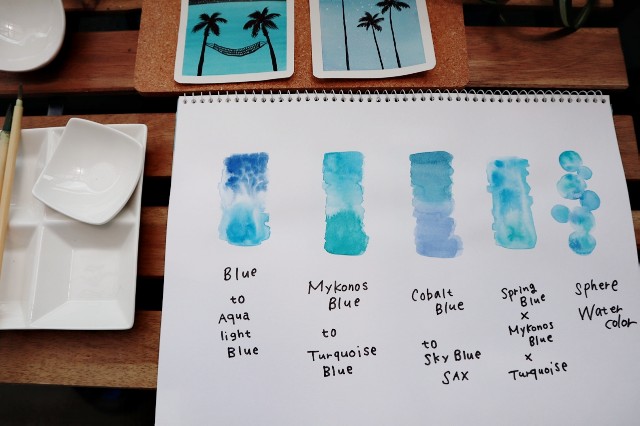 Blue
to
Aqua
light
Blue
Mykonos
Blue
to
Turquoise
Blue
Cobalt
Blue
to
Sky Blue
SAX
Spring
Blue
x
Mykonos
Blue
x
Turquoise
Sphere
Water
color